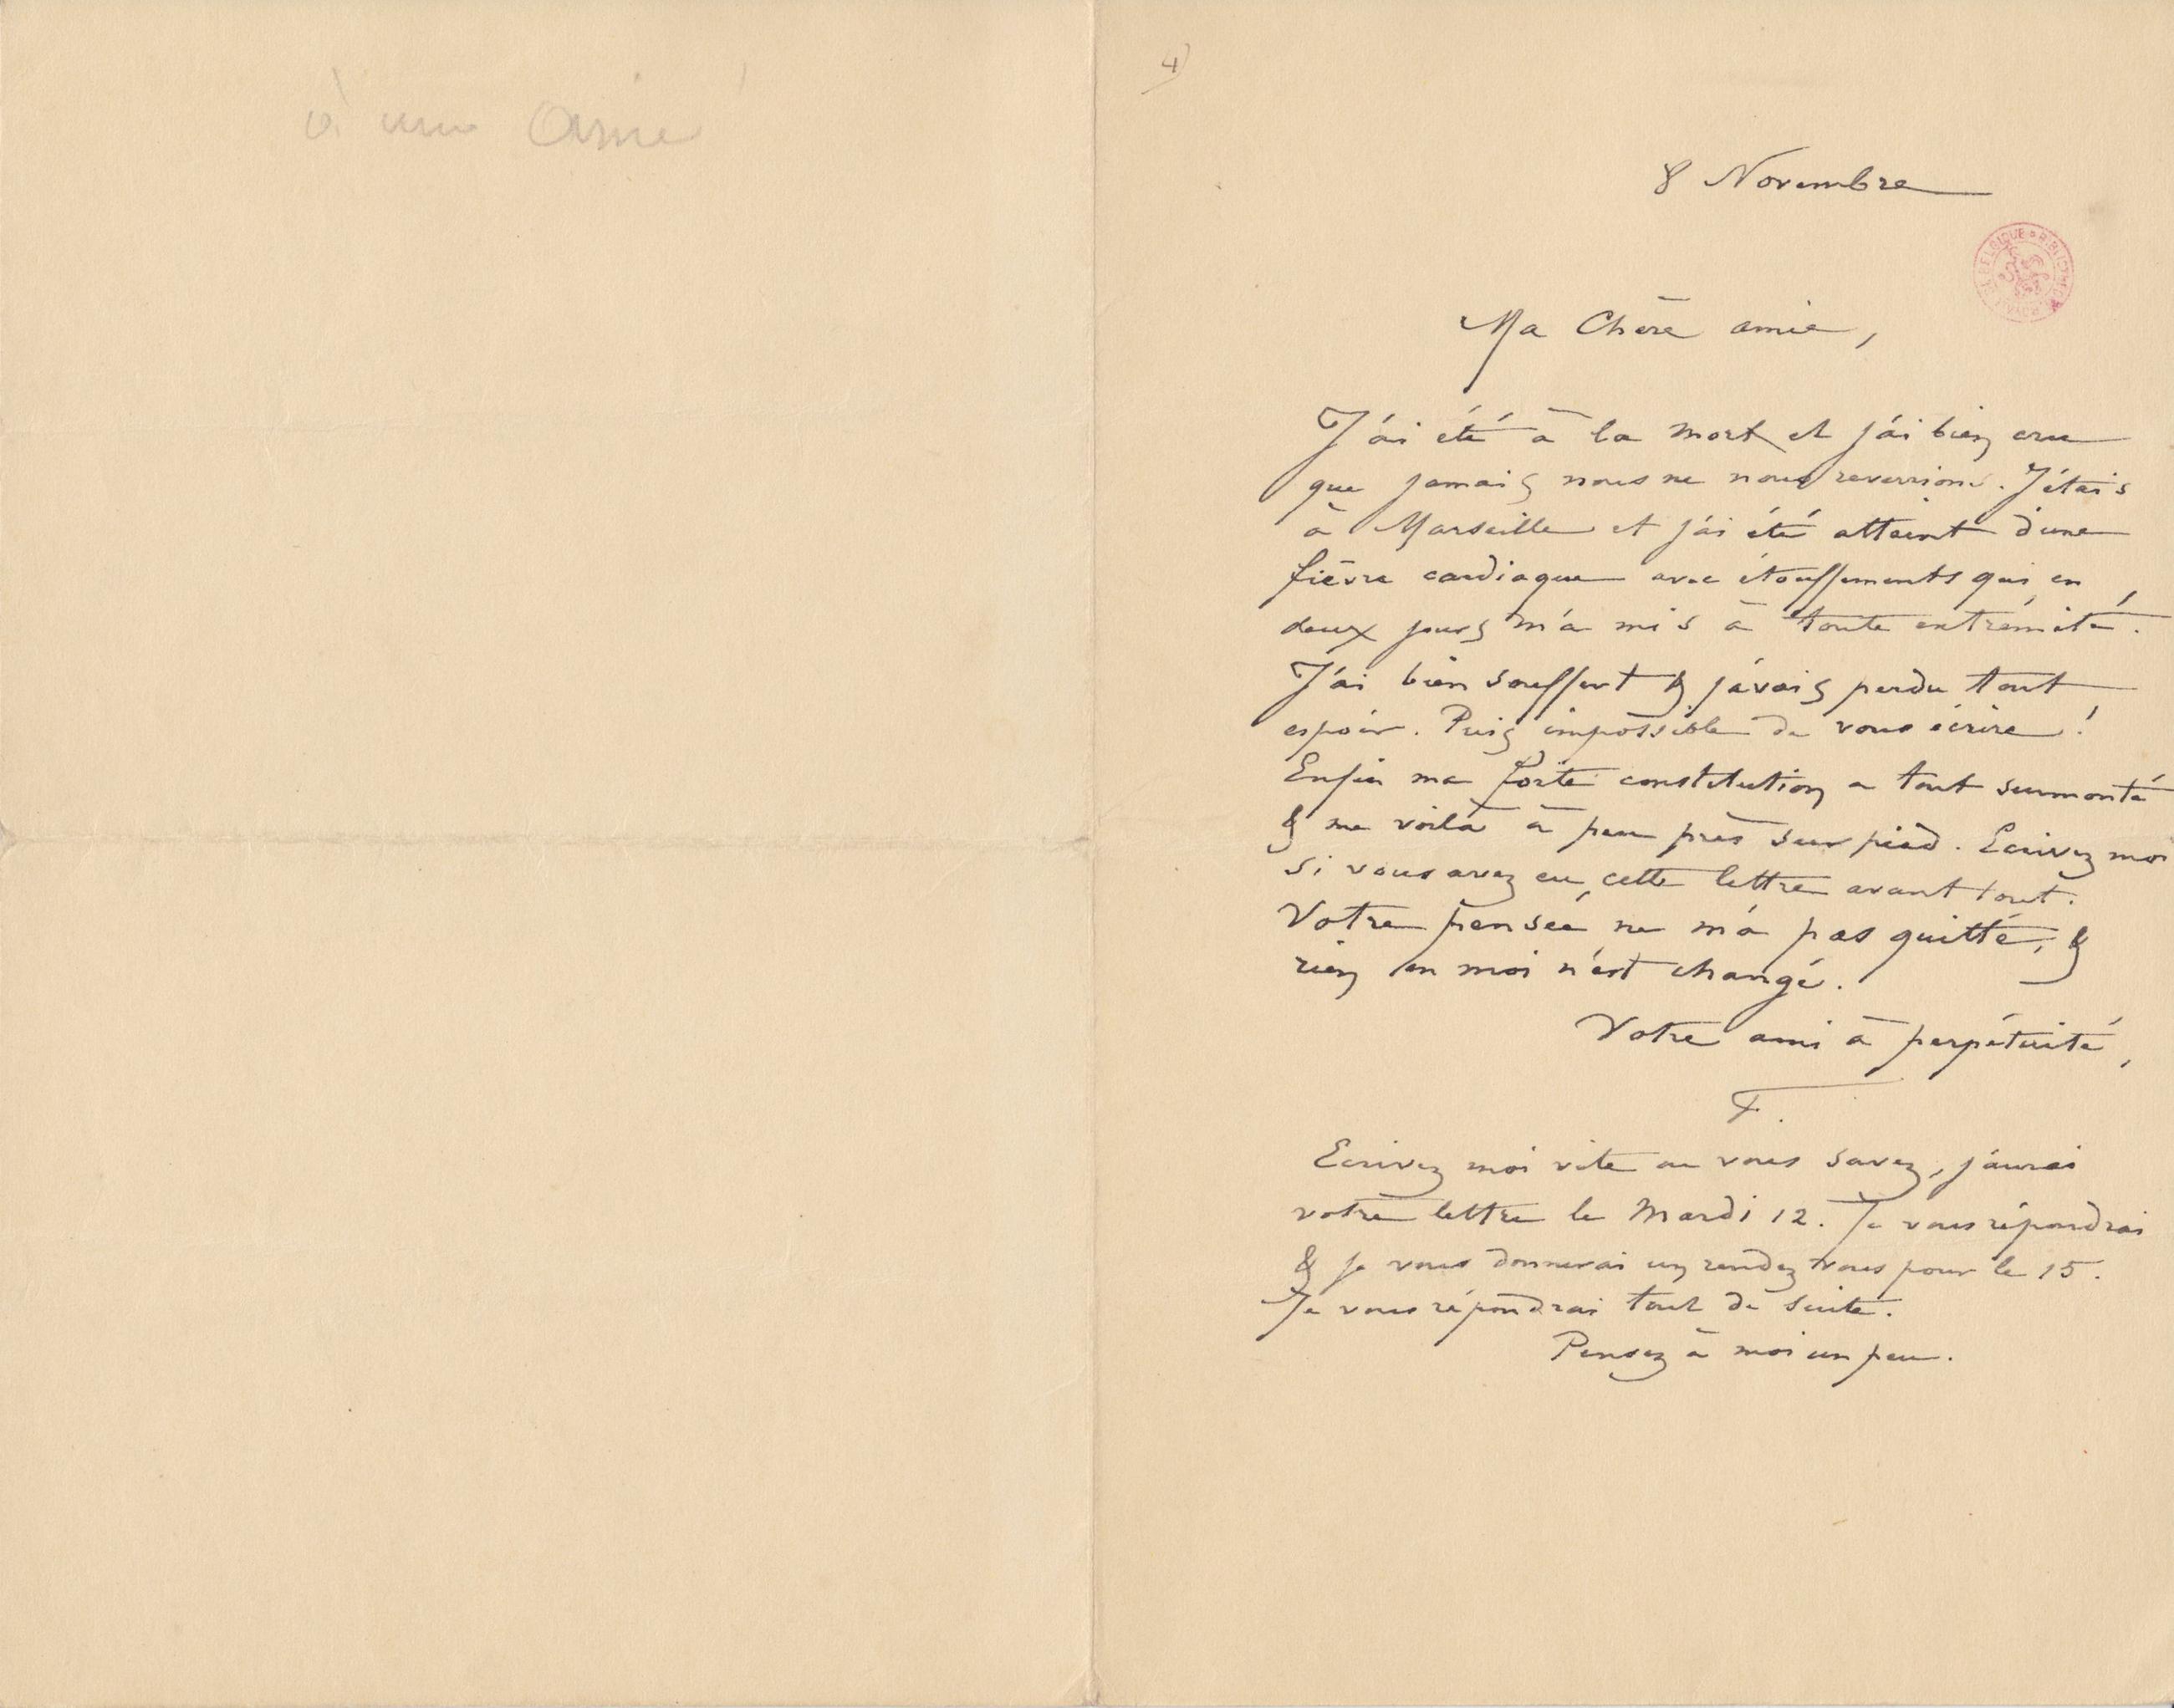 à une amie
4)
8 Novembre
Ma Chère amie,
J'ai été à la mort et j'ai bien cru
que jamais nous ne nous reverrions. J'étais
à Marseille et j'ai été atteint d'une
fièvre cardiaque avec étouffements qui, en
deux jours m'a mis à toute extrémité.
J'ai bien souffert & j'avais perdu tout
espoir. Puis impossible de vous écrire !
Enfin ma forte constitution a tout surmonté
& me voilà à peu près sur pied. Ecrivez moi
si vous avez eu cette lettre avant tout.
Votre pensée ne m'a pas quitté, &
rien en moi n'est changé.
Votre ami à perpétuité,
F.
Ecrivez moi vite ou vous savez, j'aurai
votre lettre le Mardi 12. Je vous répondrai
& je vous donnerai un rendez vous pour le 15.
Je vous répondrai tout de suite.
Pensez à moi un peu.